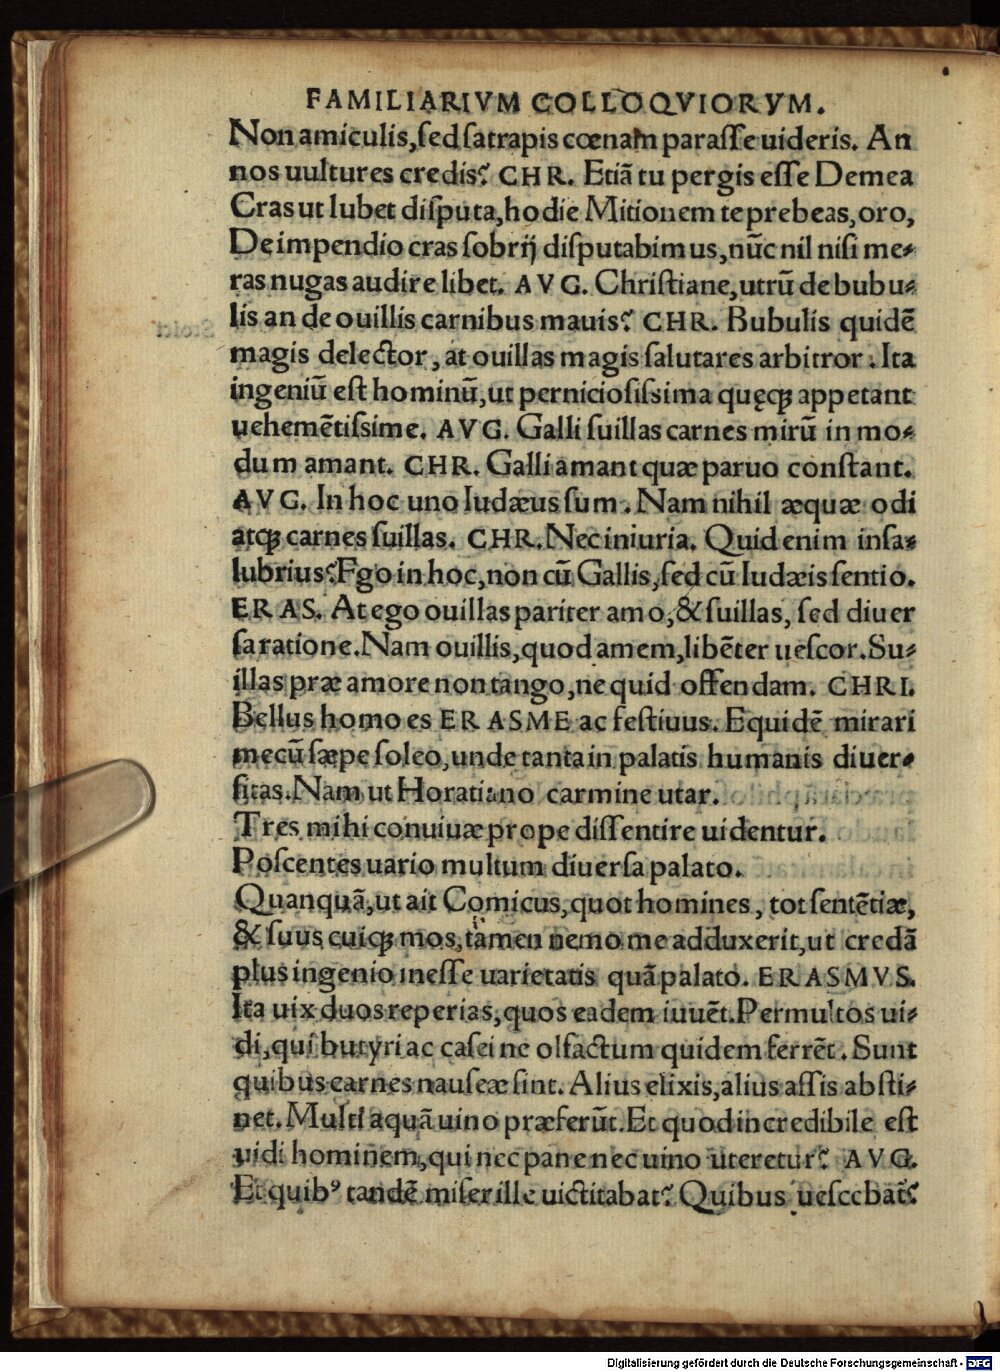 FAMILIARIVM COLLOQVIORVM.
Non amiculis, ſed ſatrapis cœnam paraſſe uideris. An
nos uultures credis? CHR. Etiã tu pergis eſſe Demea
Cras ut lubet diſputa, hodie Mitionem te prebeas, oro,
De impendio cras ſobrij diſputabimus, nũc nil niſi me⸗
ras nugas audire libet. AVG. Chriſtiane, utrũ de bubu⸗
lis an de ouillis carnibus mauis? CHR. Bubulis quidẽ
magis delector, at ouillas magis ſalutares arbitror. Ita
ingeniũ eſt hominũ, ut pernicioſiſsima quęcꝗ appetant
uehemẽtiſsime. AVG. Galli ſuillas carnes mirũ in mo⸗
dum amant. CHR. Galli amant quæ paruo conſtant.
AVG. In hoc uno Iudæus ſum. Nam nihil æquæ odi
atcꝗ carnes ſuillas. CHR. Nec iniuria. Quid enim inſa⸗
lubrius? Ego in hoc, non cũ Gallis, ſed cũ Iudæis ſentio.
ERAS. At ego ouillas pariter amo, & ſuillas, ſed diuer
ſa ratione. Nam ouillis, quod amem, libẽter ueſcor. Su⸗
illas præ amore non tango, ne quid offendam. CHRI.
Bellus homo es ERASME ac feſtiuus. Equidẽ mirari
mecũ ſæpe ſoleo, unde tanta in palatis humanis diuer⸗
ſitas. Nam ut Horatiano carmine utar.
Tres mihi conuiuæ prope diſſentire uidentur.
Poſcentes uario multum diuerſa palato.
Quanquã, ut ait Comicus, quot homines, tot ſentẽtiæ,
& ſuus cuicꝗ mos, tamen nemo me adduxerit, ut credã
plus ingenio ineſſe uarietatis quã palato. ERASMVS.
Ita uix duos reperias, quos eadem iuuẽt. Permultos ui⸗
di, qui butyri ac caſei ne olfactum quidem ferrẽt. Sunt
quibus carnes nauſeæ ſint. Alius elixis, alius aſſis abſti⸗
net. Multi aquã uino præferũt. Et quod incredibile eſt
uidi hominem, qui nec pane nec uino uteretur? AVG.
Et quibꝰ tandẽ miſer ille uictitabat? Quibus ueſcebat̃?
Digitalisierung gefördert durch die Deutsche Forschungsgemeinschaft - DFG